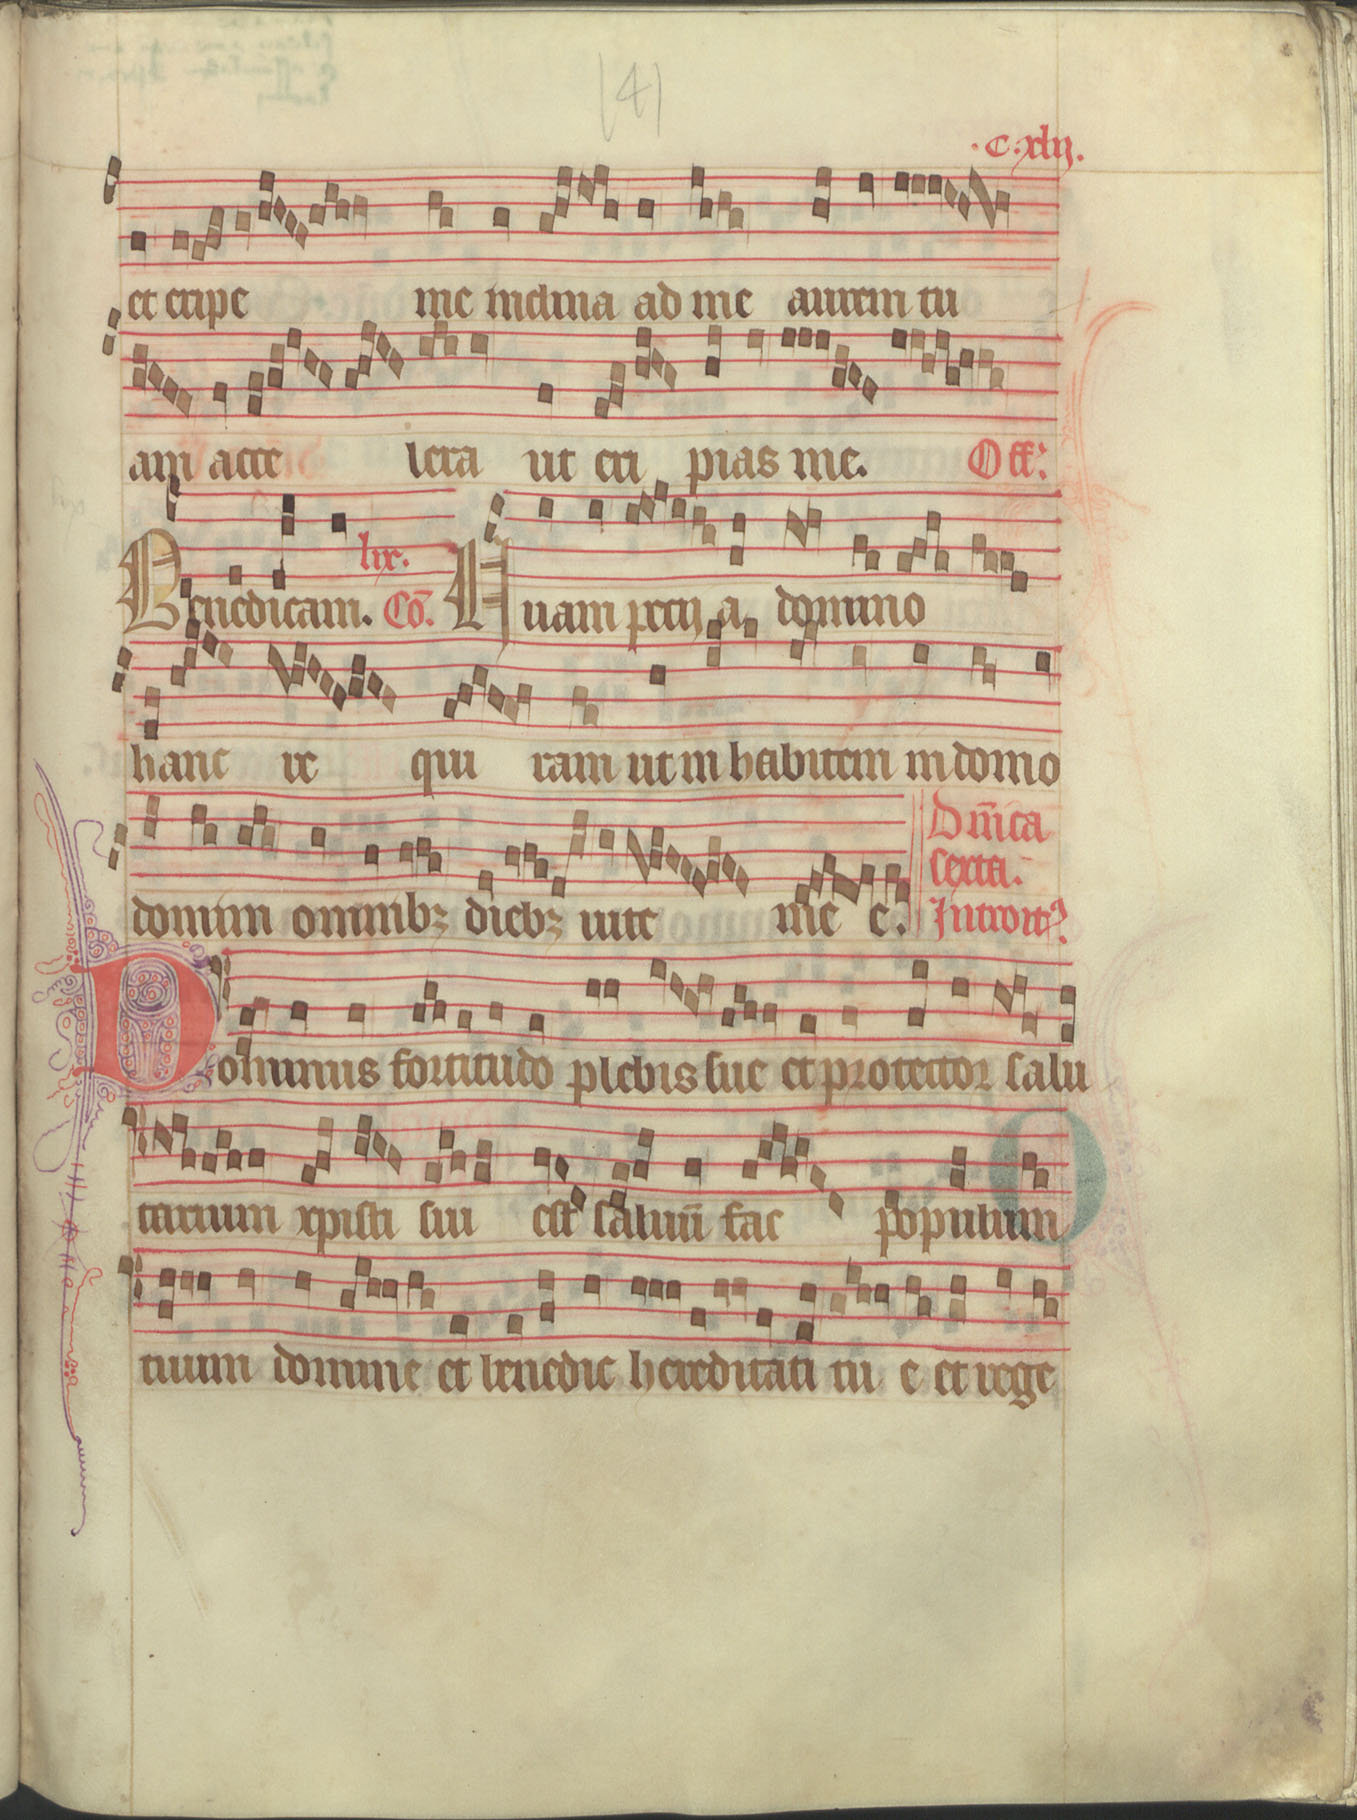 (4)
.c.xlij.
et eripe me inclina ad me aurem tu
am acce lera ut eri pias me. Off.
Benedicam. lix. Cō. Unam pecij a domino
hanc re qui ram ut in habitem in domo
domini omnibꝫ diebꝫ uite me e. Dn̄ica
sexta.
Introitꝰ
Dominus fortitudo plebis sue et protector salu
tarium xpisti sui est saluū fac populum
tuum domine et benedic hereditati tu e et rege